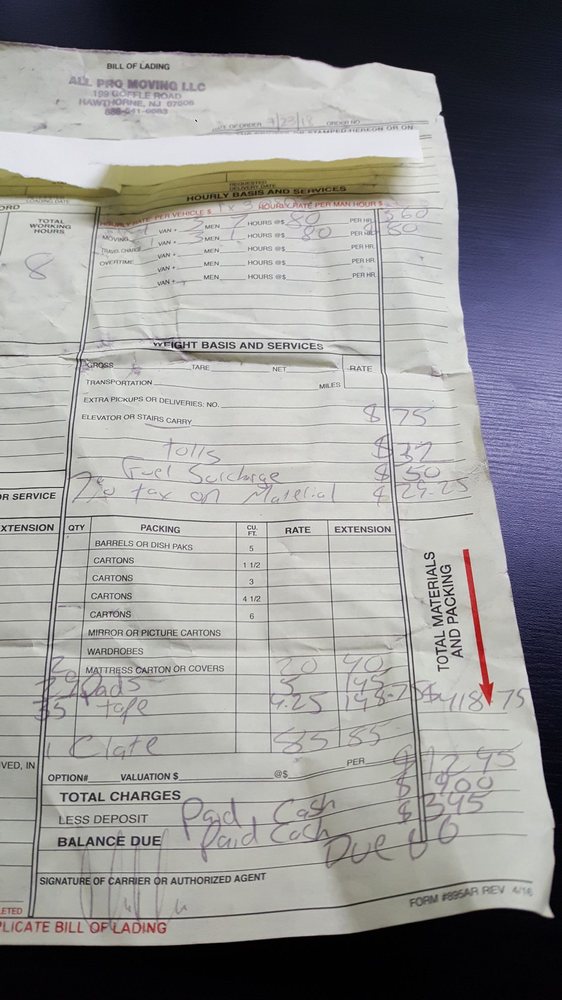 BILL OF LADING
ALL PRO MOVING LLC
199 GOFFLE ROAD
HAWTHORNE, NJ 07506
ORDER NO.
REQUESTED DELIVERY DATE
LOADING DATE
HOURLY BASIS AND SERVICES
HOURLY RATE PER VEHICLE $ HOURLY RATE PER MAN HOUR $
TOTAL WORKING HOURS
8
MOVING 1 VAN + 3 MEN 7 HOURS @$ 80 PER HR. 560
TRAVEL CHARGE 1 VAN + 3 MEN 1 HOURS @$ 80 PER HR. 80
OVERTIME VAN + MEN HOURS @$ PER HR.
VAN + MEN HOURS @$ PER HR.
VAN + MEN HOURS @$ PER HR.
WEIGHT BASIS AND SERVICES
GROSS TARE NET RATE
TRANSPORTATION MILES
EXTRA PICKUPS OR DELIVERIES: NO.
ELEVATOR OR STAIRS CARRY $ 75
Tolls $ 37
Fuel Surcharge $ 50
7% tax on Material $ 29.25
OR SERVICE
EXTENSION QTY PACKING CU. FT. RATE EXTENSION
BARRELS OR DISH PAKS 5
CARTONS 1 1/2
CARTONS 3
CARTONS 4 1/2
CARTONS 6
MIRROR OR PICTURE CARTONS
WARDROBES
2 MATTRESS CARTON OR COVERS 20 40
29 Pads 5 145
35 tape 4.25 148.75 $418 75
1 Clate 85 85
TOTAL MATERIALS AND PACKING
VED, IN
OPTION# VALUATION $ @$ PER
TOTAL CHARGES $1245
LESS DEPOSIT Paid Cash $ 900
BALANCE DUE Paid Cash $ 345
Due $ 0
SIGNATURE OF CARRIER OR AUTHORIZED AGENT
FORM #895AR REV 4/16
PLICATE BILL OF LADING